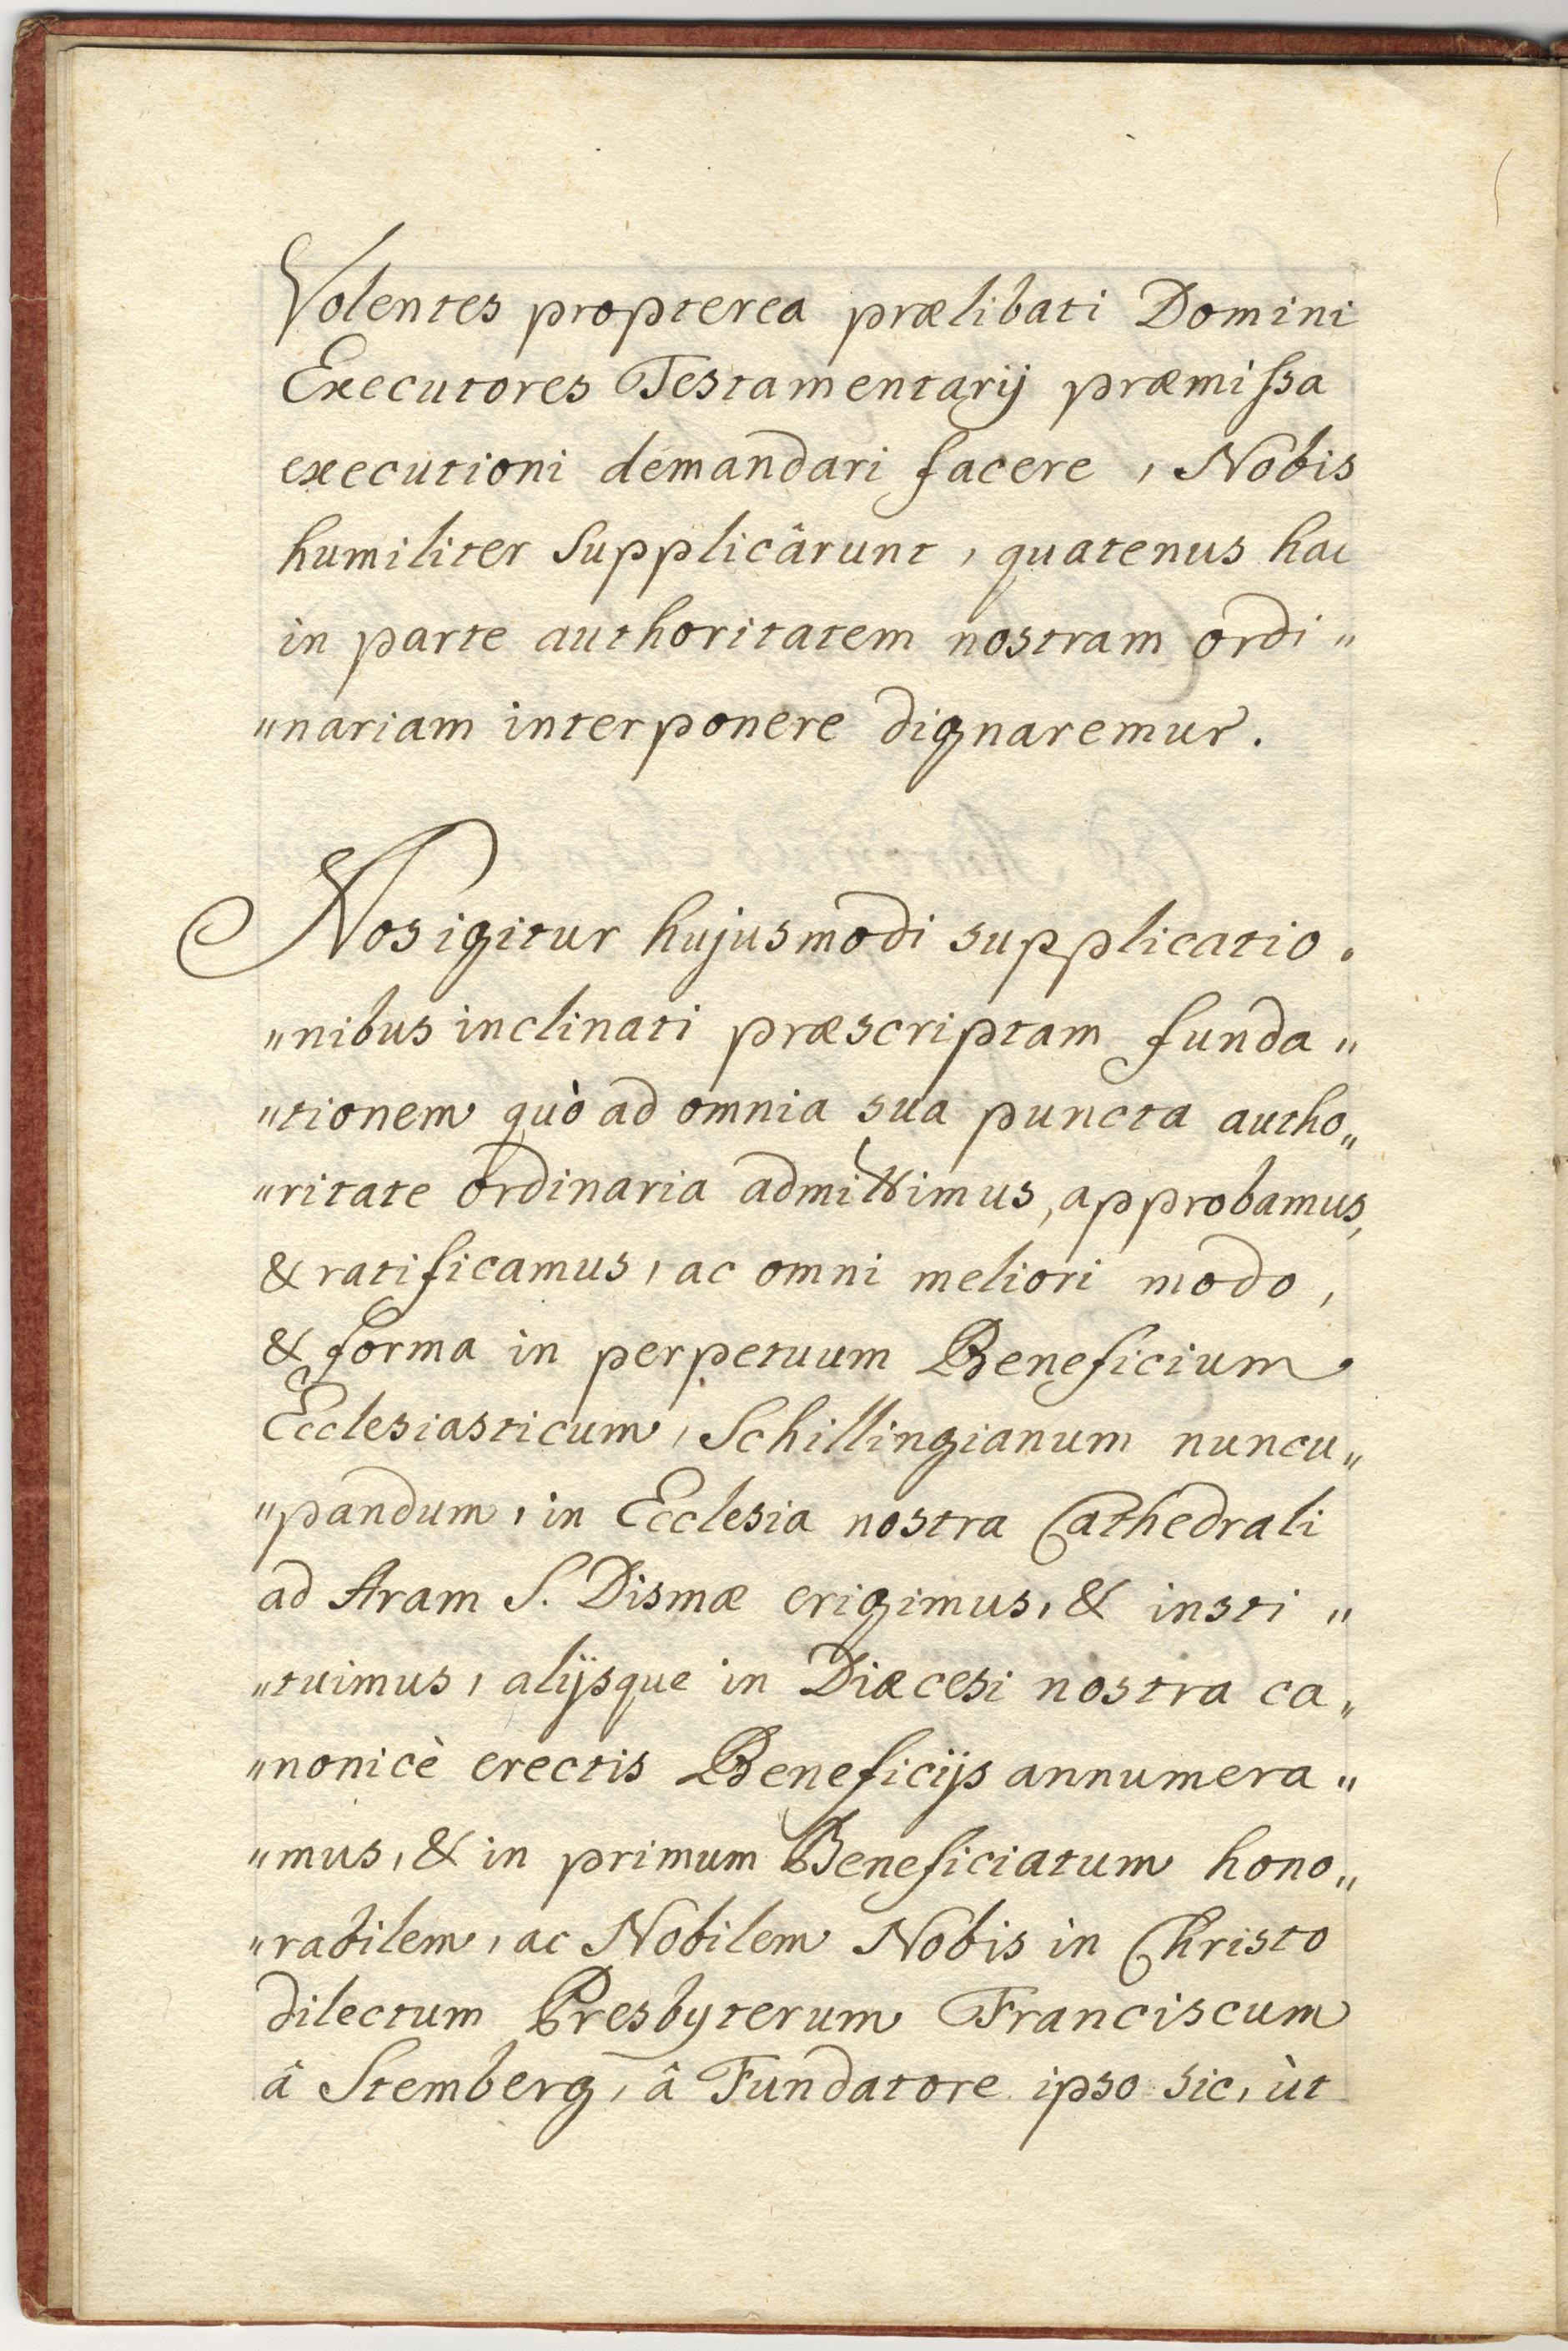 Volentes propterea prælibati Domini
Executores Testamentarij præmissa
executioni demandari facere, Nobis
humiliter supplicârunt, quatenus hac
in parte authoritatem nostram ordi„
„nariam interponere dignaremur.
Nos igitur hujusmodi supplicatio„
„nibus inclinati præscriptam funda„
„tionem quò ad omnia sua puncta autho„
„ritate ordinaria admittimus, approbamus,
& ratificamus, ac omni meliori modo,
& forma in perpetuum Beneficium
Ecclesiasticum, Schillingianum nuncu„
„pandum, in Ecclesia nostra Cathedrali
ad Aram S. Dismæ erigimus, & insti„
„tuimus, alijsque in Diœcesi nostra ca„
„nonicè erectis Beneficijs annumera„
„mus, & in primum Beneficiatum hono„
„rabilem, ac Nobilem Nobis in Christo
dilectum Presbyterum Franciscum
â Stemberg, â Fundatore ipso sic, ùt